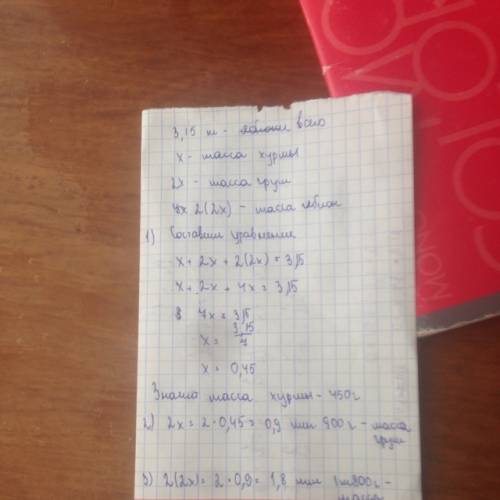 3,15 кг - всего
x - масса хурмы
2x - масса груш
2(2x) - масса яблок
1) Составим уравнение
x + 2x + 2(2x) = 3,15
x + 2x + 4x = 3,15
7x = 3,15
x = 3,15/7
x = 0,45
Значит масса хурмы - 450г
2) 2x = 2·0,45 = 0,9 или 900г - масса груш
3) 2(2x) = 2·0,9 = 1,8 или 1кг800г - масса